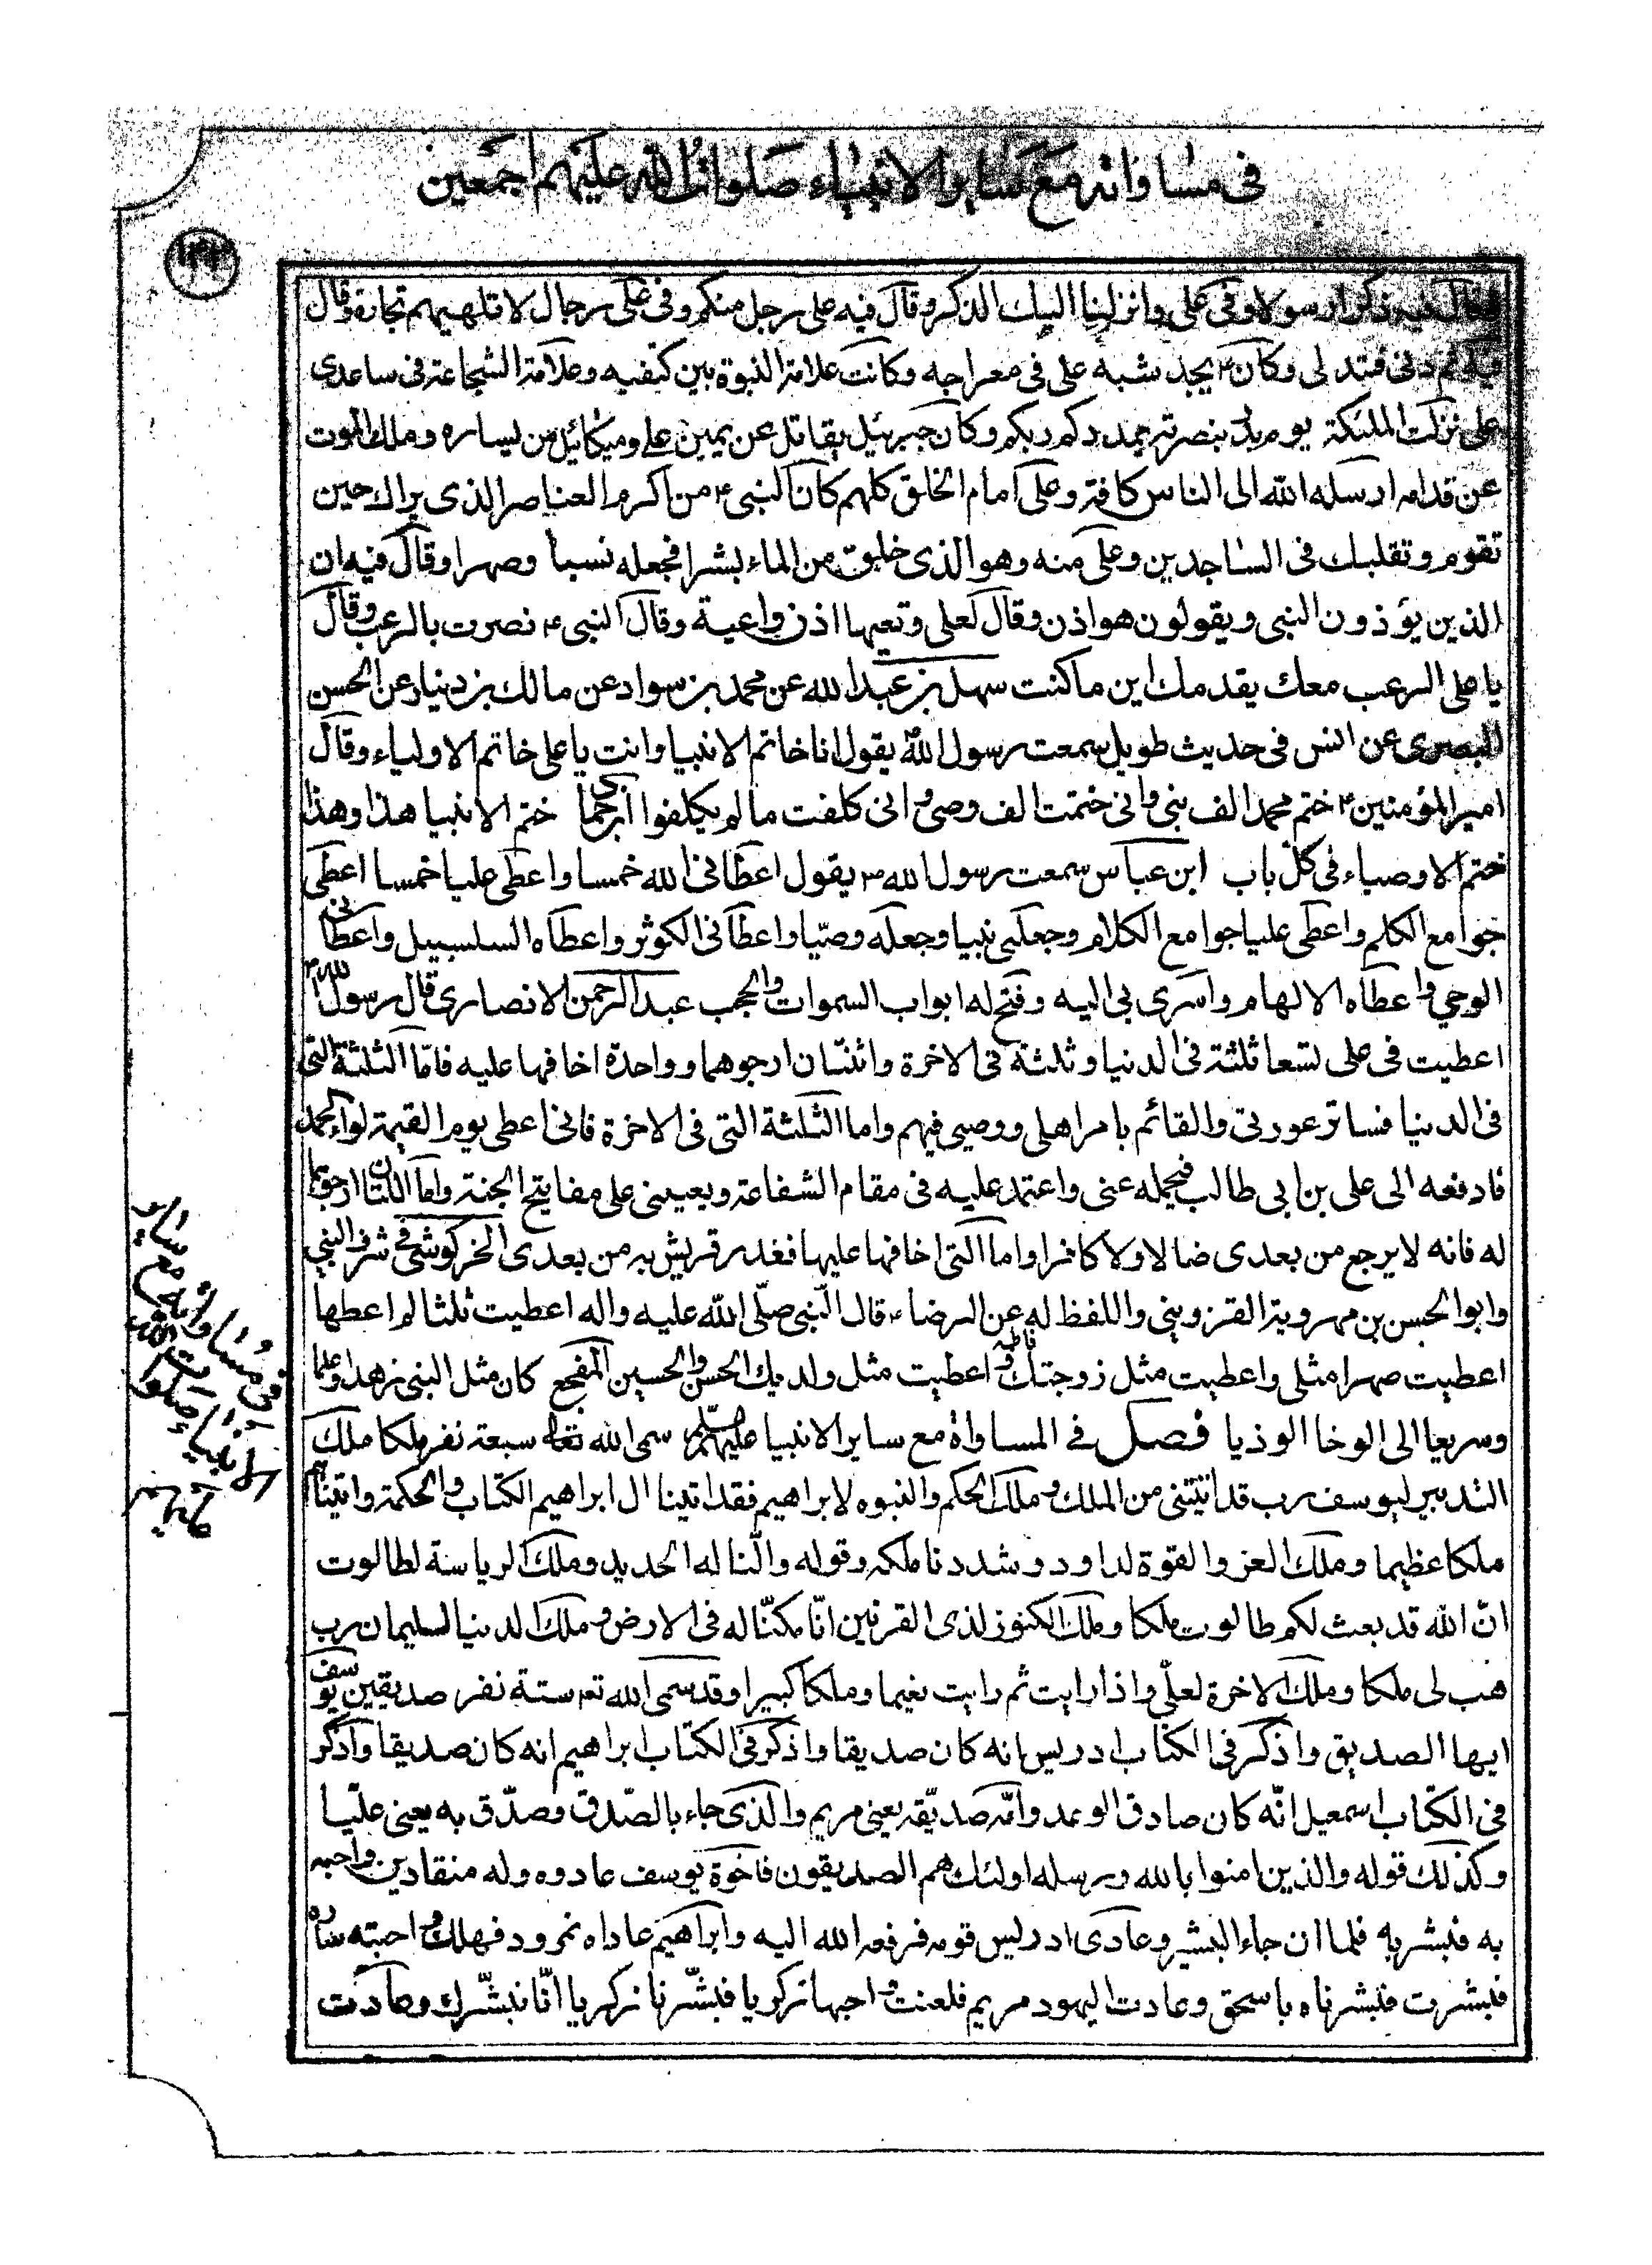 في مساواته مع ساير الانبياء صلوات الله عليهم اجمعين
فيه ذكرا رسولا وفى على وانزلنا اليك الذكر وقال فيه على رجل منكم وفى على رجال لا تلهيهم تجارة وقال
فيه ثم دنى فتدلى وكان ع يجد شبه على فى معراجه وكانت علامة النبوة بين كتفيه وعلامة الشجاعة فى ساعدى
على نزلت الملئكة يوم بدر بنصرته يمددكم ربكم وكان جبرئيل يقاتل عن يمين على وميكائيل من يساره وملك الموت
عن قدامه ارسله الله الى الناس كافة وعلى امام الخلق كلهم كان النبى ع من اكرم العناصر الذى يراك حين
تقوم وتقلبك فى الساجدين وعلى منه وهو الذى خلق من الماء بشرا فجعله نسبا وصهرا وقال فيه ان
الذين يؤذون النبى ويقولون هو اذن وقال لعلى وتعيها اذن واعية وقال النبى ع نصرت بالرعب وقال
يا على الرعب معك يقدمك اين ما كنت سهل بن عبد الله عن محمد بن سواد عن مالك بن دنيار عن الحسن
البصرى عن انس فى حديث طويل سمعت رسول الله ص يقول انا خاتم الانبيا وانت يا على خاتم الاولياء وقال
امير المؤمنين ع ختم محمد الف نبى وانى ختمت الف وصى وانى كلفت ما لم يكلفوا ختم الانبيا هذا وهذا
ختم الاوصياء فى كل باب ابن عباس سمعت رسول الله ص يقول اعطانى الله خمسا واعطى عليا خمسا اعطى
جوامع الكلم واعطى عليا جوامع الكلام وجعلنى نبيا وجعله وصيّا واعطانى الكوثر واعطاه السلسبيل واعطانى
الوحي واعطاه الالهام واسرى بى اليه وفتح له ابواب السموات والحجب عبد الرحمن الانصارى قال رسول الله ص
اعطيت فى على تسعا ثلثة فى الدنيا وثلثة فى الاخرة واثنتان ارجوهما وواحدة اخافها عليه فامّا الثلثة التى
فى الدنيا فساتر عورتى والقائم بامر اهلى ووصيى فيهم واما الثلثة التى فى الاخرة فانى اعطى يوم القيمة لواء الحمد
فادفعه الى على بن ابى طالب فيحمله عنى واعتمد عليه فى مقام الشفاعة ويعيننى على مفاتيح الجنة واما اللتان ارجوهما
له فانه لا يرجع من بعدى ضالا ولا كافرا واما التى اخافها عليها فغدر قريش به من بعدى الخركوشى فى شرف النبى
وابو الحسن بن مهرويه القزوينى واللفظ له عن الرضا ع قال النّبى صلّى الله عليه واله اعطيت ثلثا لم اعطها
اعطيت صهرا مثلى واعطيت مثل زوجتك فاطمه واعطيت مثل ولديك الحسن والحسين المفجع كان مثل النبى زهدا وعلما
وسريعا الى الوغا الوذيا فصل فى المساواة مع ساير الانبيا عليهم سمى الله تعالى سبعة نفر ملكا ملك
التدبير ليوسف رب قد اتيتنى من الملك وملك الحكم والنبوه لابراهيم فقد اتينا ال ابراهيم الكتاب والحكمة واتيناهم
ملكا عظيما وملك العز والقوة لداود وشددنا ملكه وقوله والنّا له الحديد وملك الرياسة لطالوت
انّ الله قد بعث لكم طالوت ملكا وملك الكنوز لذى القرنين انّا مكنّا له فى الارض وملك الدنيا لسليمان رب
هب لى ملكا وملك الاخرة لعلى واذا رايت ثم رايت نعيما وملكا كبيرا وقد سمى الله تع ستة نفر صديقين يوسف
ايها الصديق واذكر فى الكتاب ادريس انه كان صديقا واذكر فى الكتاب ابراهيم انه كان صديقا واذكر
فى الكتاب اسمعيل انّه كان صادق الوعد وامّه صدّيقه يعنى مريم والذى جاء بالصّدق وصدّق به يعنى عليّا
وكذلك قوله والذين امنوا بالله ورسله اولئك هم الصديقون فاخوة يوسف عادوه وله منقادين واحبه
به فبشر به فلما ان جاء البشير وعادى ادريس قومه فرفعه الله اليه وابراهيم عاداه نمرود فهلك واحبته ساره
فبشرت فبشرناه باسحق وعادت اليهود مريم فلعنت واحبها زكريا فبشّرنا زكريا انّا نبشّرك وعادت
فى مساواته مع ساير
الانبياء صلوات الله